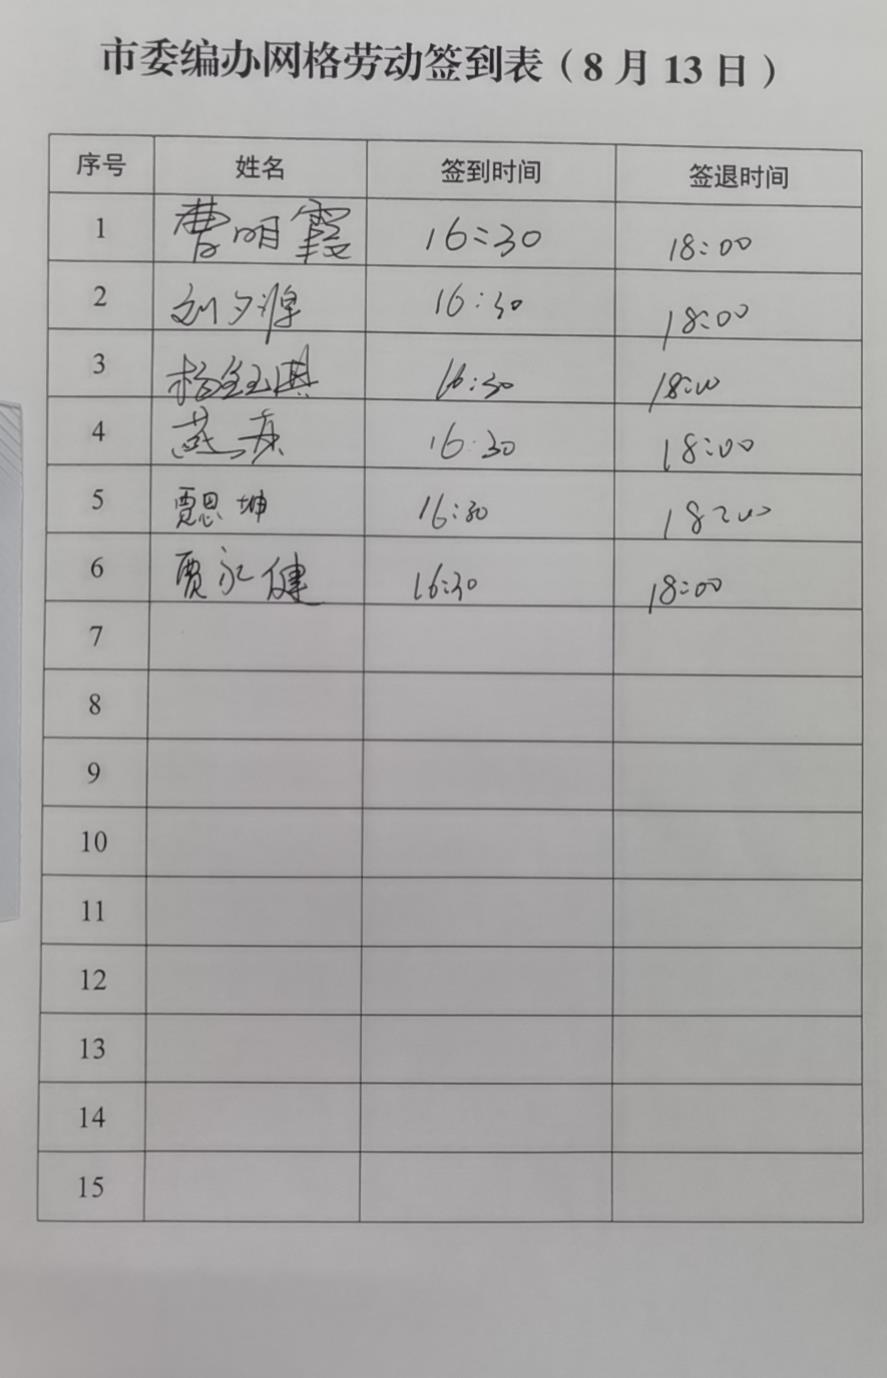 市委编办网格劳动签到表（8月13日）
序号 姓名 签到时间 签退时间
1 曹明霞 16:30 18:00
2 刘夕 16:30 18:00
3 杨钰琪 16:30 18:00
4 燕 16:30 18:00
5 贾恩坤 16:30 18:00
6 贾永健 16:30 18:00
7
8
9
10
11
12
13
14
15